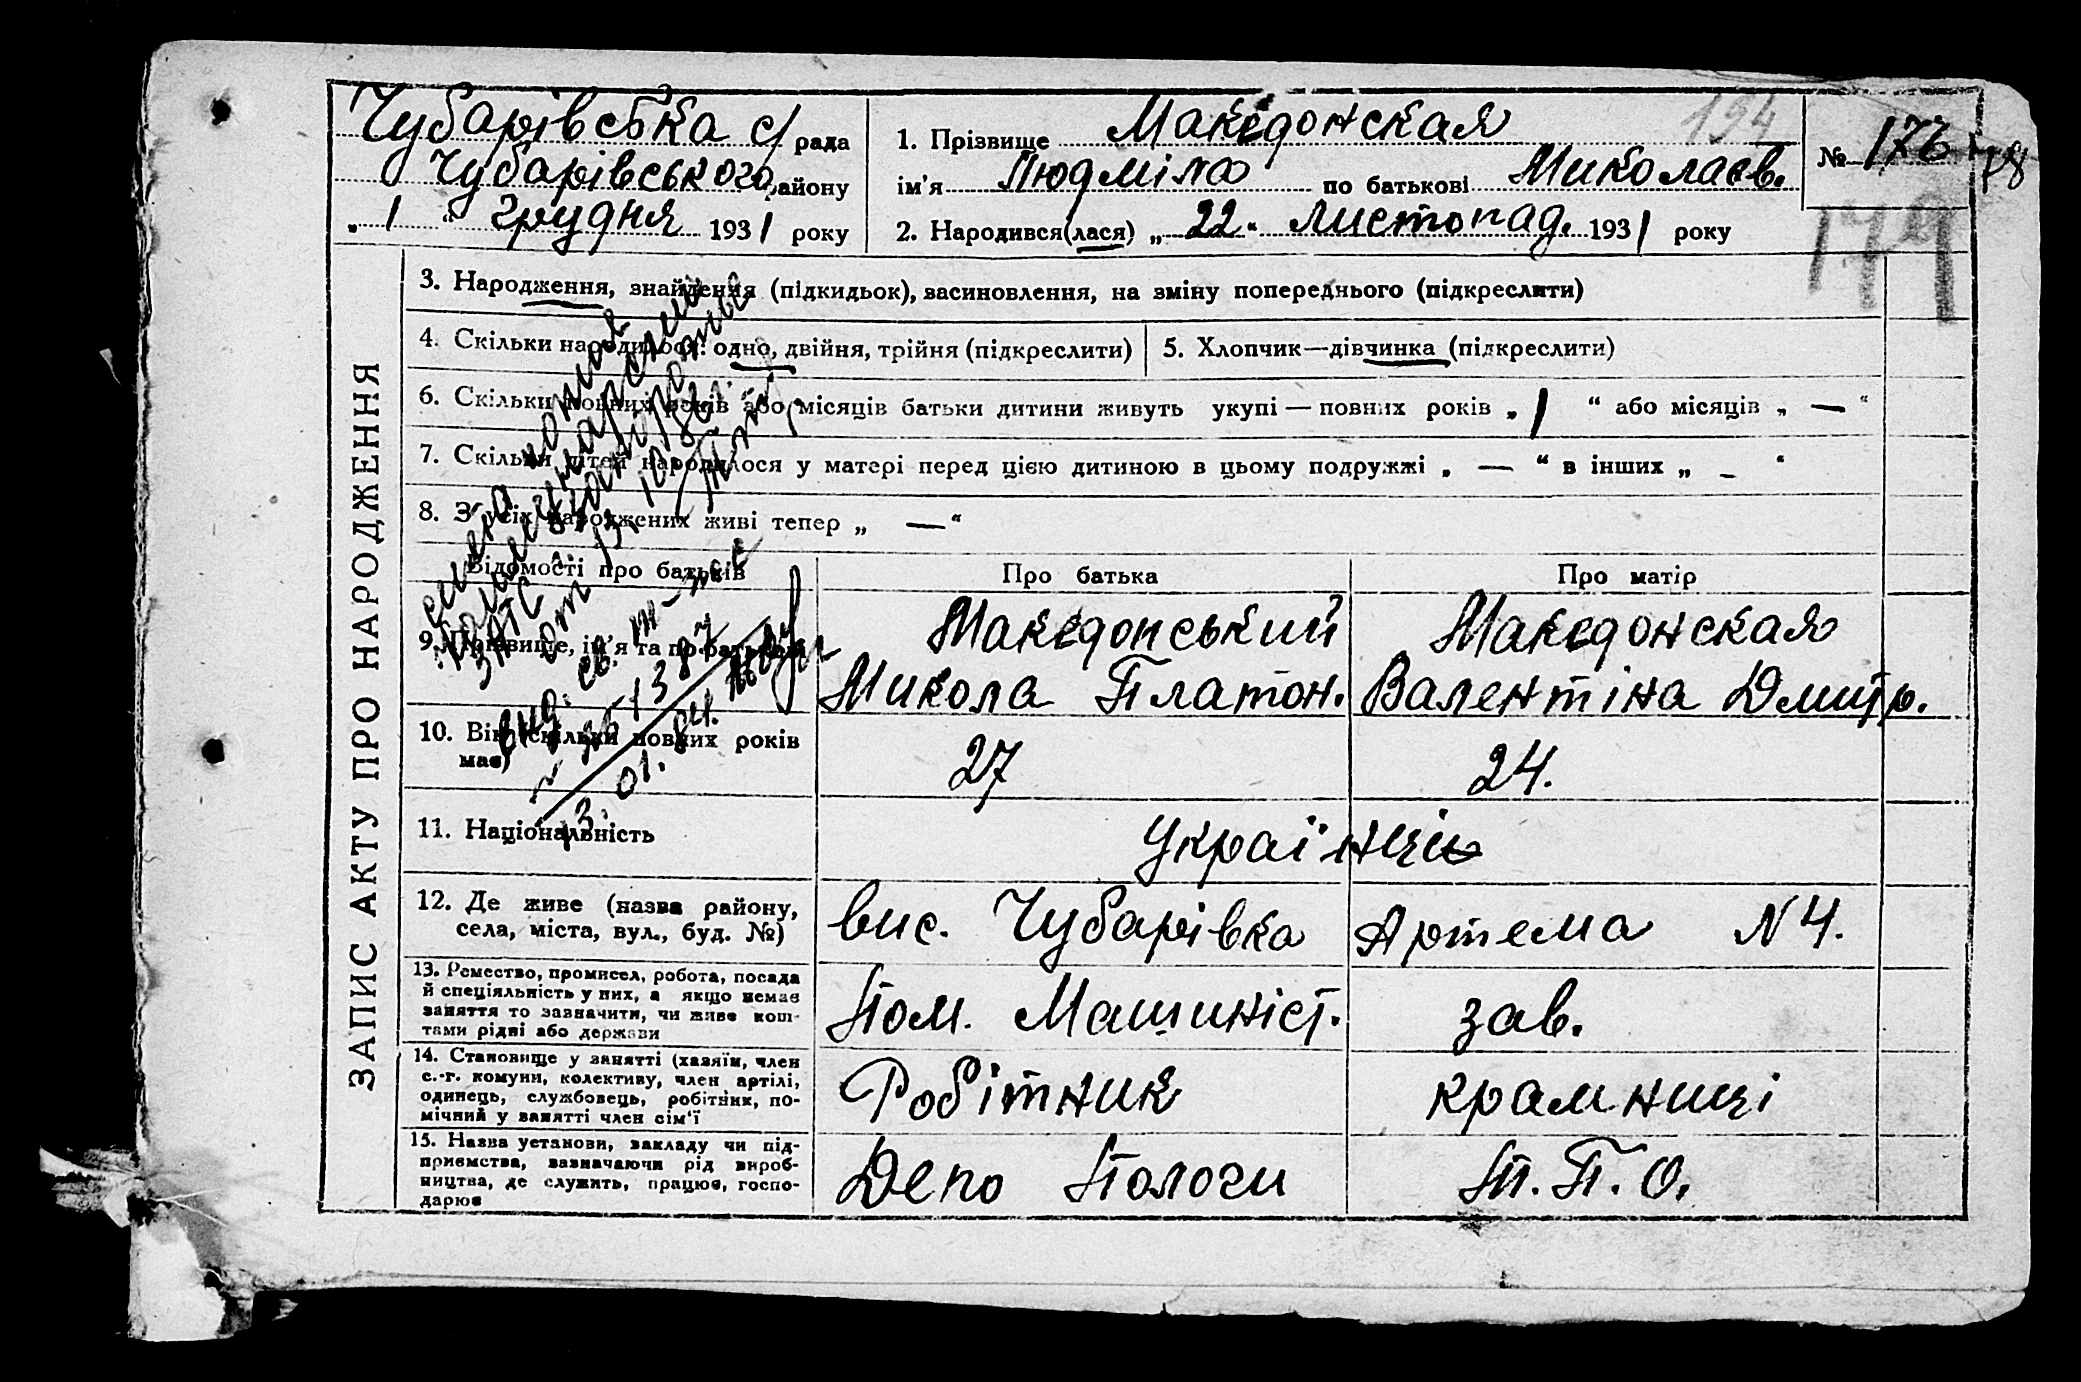 Чубарівська с/рада
Чубарівського району
„ 1 “ грудня 1931 року
1. Прізвище Македонская
ім’я Людміла по батькові Миколаєв.
2. Народився(лася) „ 22 “ листопад. 1931 року
194
№ 176
178
179
ЗАПИС АКТУ ПРО НАРОДЖЕННЯ
3. Народження, знайдення (підкидьок), засиновлення, на зміну попереднього (підкреслити)
4. Скільки народилося: одно, двійня, трійня (підкреслити)
5. Хлопчик—дівчинка (підкреслити)
6. Скільки повних років або місяців батьки дитини живуть укупі — повних років „ 1 “ або місяців „ — “
7. Скільки дітей народилося у матері перед цією дитиною в цьому подружжі „ — “ в інших „ – “
8. З усіх народжених живі тепер „ — “
Відомості про батьків
Про батька
Про матір
9. Прізвище, ім’я та по батькові
Македонський
Микола Платон.
Македонская
Валентіна Дмитр.
10. Вік (скільки повних років має)
27
24.
11. Національність
Українці
12. Де живе (назва району,
села, міста, вул., буд. №)
вис. Чубарівка Артема N 4.
13. Ремество, промисел, робота, посада
й спеціяльність у них, а якщо немає
заняття то зазначити, чи живе кош-
тами рідні або держави
Пом. Машиніст.
зав.
14. Становище у занятті (хазяїн, член
с.-г. комуни, колективу, член артілі,
одинець, службовець, робітник, по-
мічний у занятті член сім’ї
Робітник
крамниці
15. Назва установи, закладу чи під-
приємства, зазначаючи рід вироб-
ництва, де служить, працює, госпо-
дарює
Депо Пологи
Т. П. О.